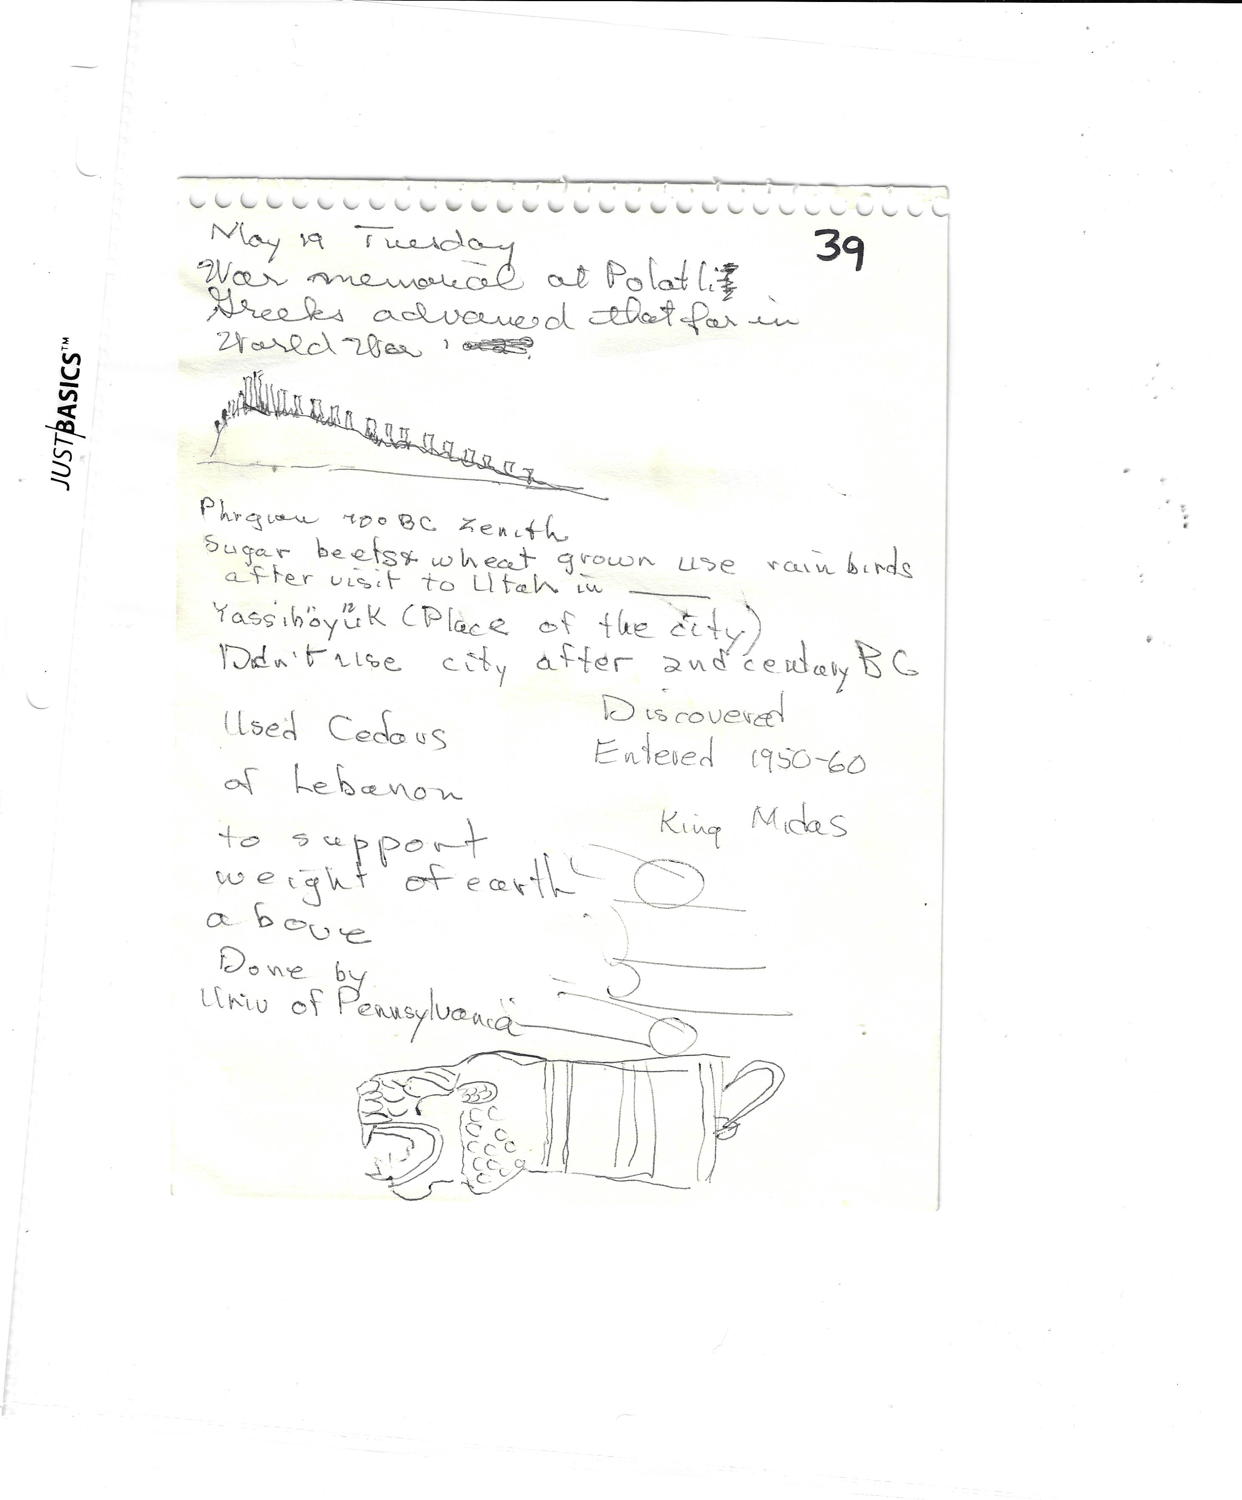 May 19 Tuesday
39
War memorial at Polatli
Greeks advanced that far in
World War 1
Phrgian 700 BC Zenith
Sugar beets & wheat grown use rain birds
after visit to Utah in ____
Yassihöyük (Place of the city)
Didn't use city after 2nd century BC
Used Cedars
of Lebanon
to support
weight of earth
above
Done by
Univ of Pennsylvania
Discovered
Entered 1950-60
King Midas
JUST BASICS™